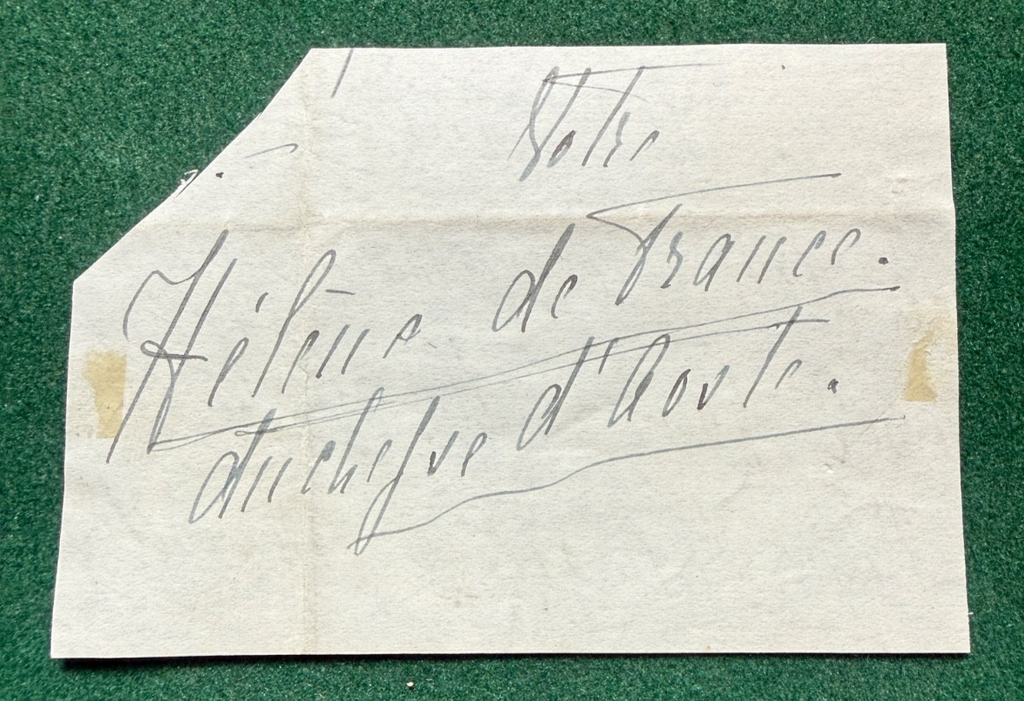 Votre
Hélène de France.
duchesse d'Aoste.